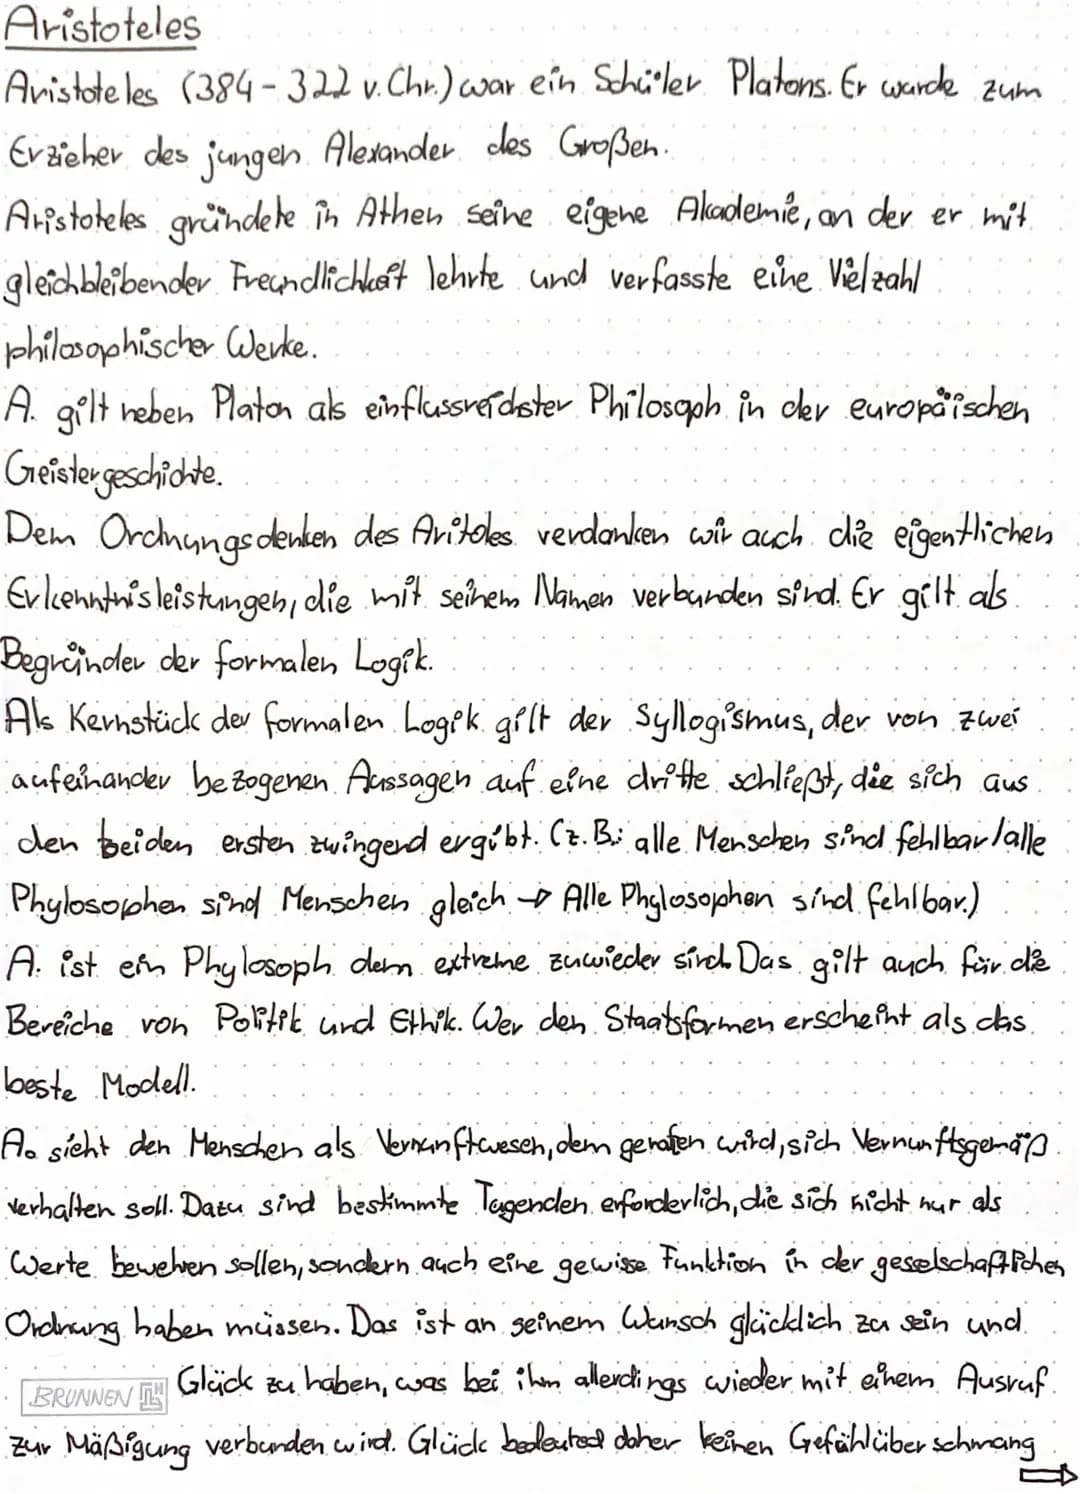 Aristoteles
Aristoteles (384-322 v.Chr.) war ein Schüler Platons. Er wurde zum
Erzieher des jungen Alexander des Großen.
Aristoteles gründete in Athen seine eigene Akademie, an der er mit
gleichbleibender Freundlichkeit lehrte und verfasste eine Vielzahl
philosophischer Werke.
A. gilt neben Platon als einflussreichster Philosoph in der europäischen
Geistergeschichte.
Dem Ordnungsdenken des Aritoles verdanken wir auch die eigentlichen
Erkenntnisleistungen, die mit seinem Namen verbunden sind. Er gilt als
Begründer der formalen Logik.
Als Kernstück der formalen Logik gilt der Syllogismus, der von zwei
aufeinander bezogenen Aussagen auf eine dritte schließt, die sich aus
den beiden ersten zwingend ergibt. (z.B.: alle Menschen sind fehlbar/alle
Phylosophen sind Menschen gleich → Alle Phylosophen sind fehlbar.)
A. ist ein Phylosoph dem extreme zuwieder sind. Das gilt auch für die
Bereiche von Politik und Ethik. Wer den Staatsformen erscheint als das
beste Modell.
A. sieht den Menschen als Vernunftwesen, dem geraten wird, sich Vernunftsgemäß
verhalten soll. Dazu sind bestimmte Tugenden erforderlich, die sich nicht nur als
Werte bewehren sollen, sondern auch eine gewisse Funktion in der geselschaftlichen
Ordnung haben müssen. Das ist an seinem Wunsch glücklich zu sein und
BRUNNEN Glück zu haben, was bei ihm allerdings wieder mit einem Ausruf
zur Mäßigung verbunden wird. Glück bedeuted daher keinen Gefühlüberschwang
⇒